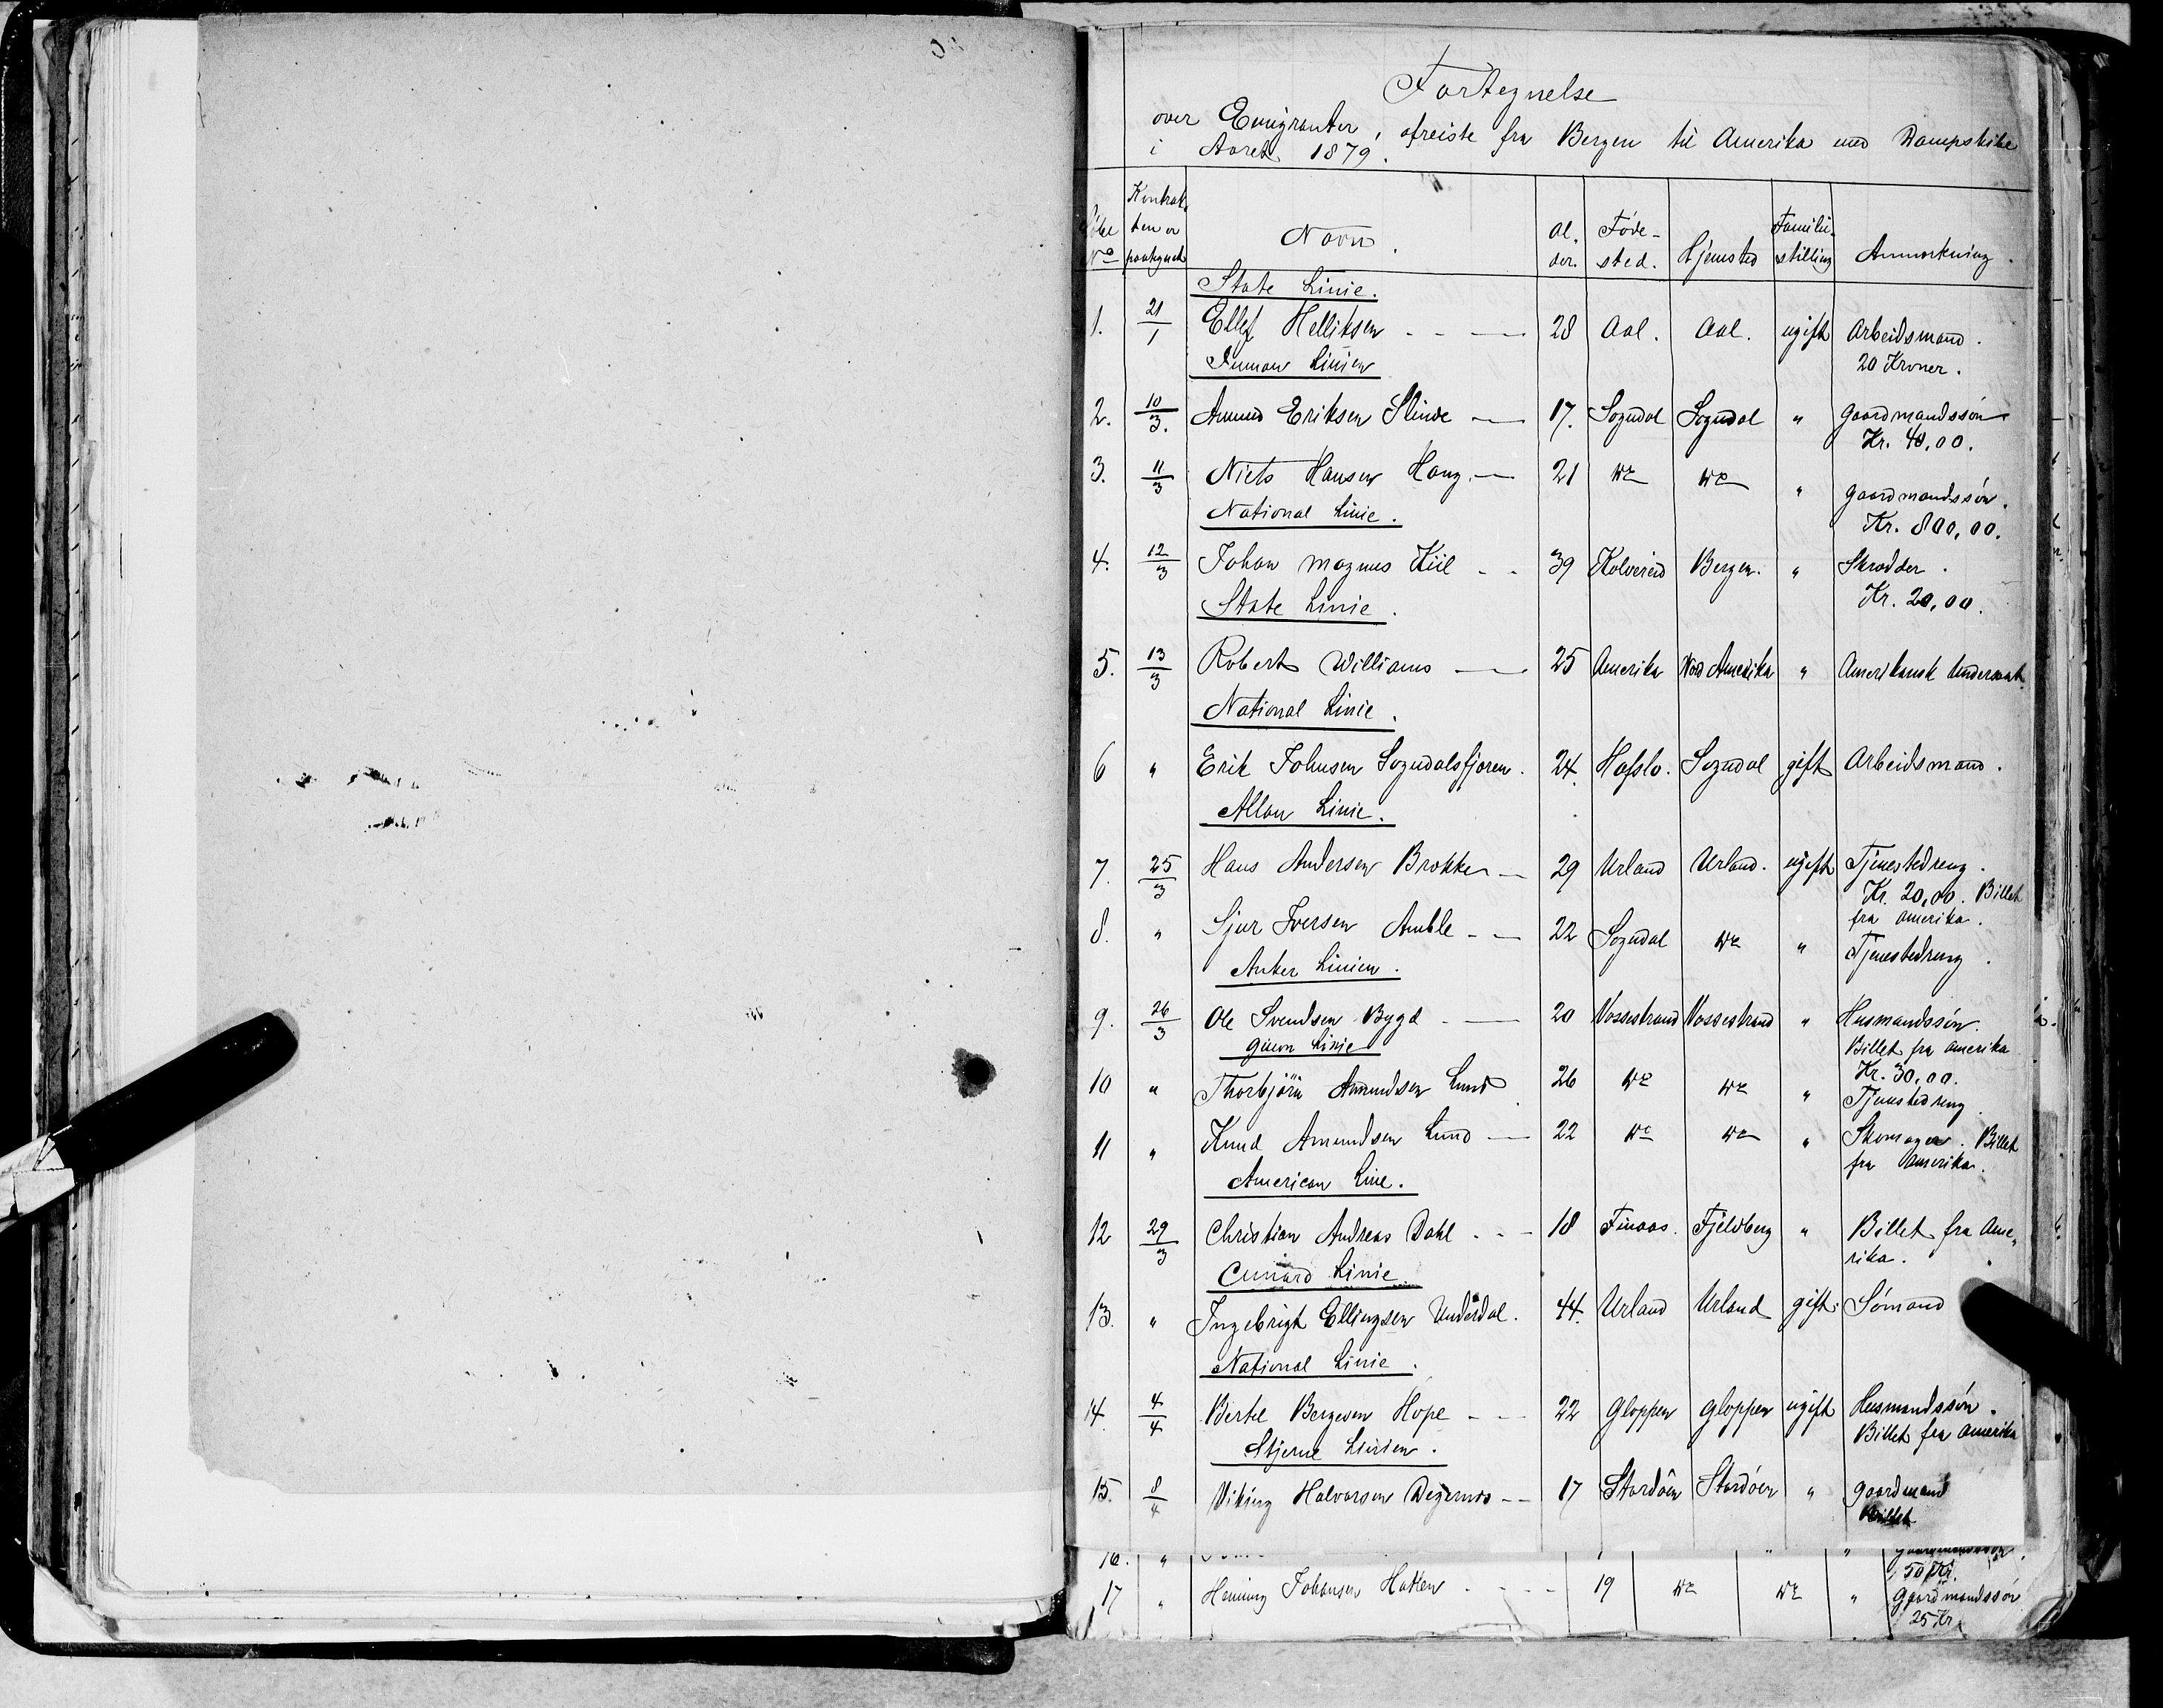 Fortegnelse
over Emigranter, afreiste fra Bergen til Amerika med Dampskibe
i Aaret 1879.
Løbe No | Kontrakten er paategnet | Navn. | Alder. | Fødested. | Hjemsted | Familiestilling | Anmærkning.
State Linie.
1. 21/1 Ellef Helliksen - - — 28 Aal. Aal. ugift Arbeidsmand.
20 Kroner.
Inman Linien
2. 10/3. Amund Eriksen Slinde — 17. Sogndal Sogndal " Gaardmandssøn
Kr. 40,00.
3. 11/3 Niels Hansen Haug — 21 do do " Gaardmandssøn.
Kr. 800,00.
National Linie.
4. 12/3 Johan Magnus Kiil - - 39 Kolvereid Bergen. " Skrædder.
Kr. 20,00.
State Linie.
5. 13/3 Robert Williams — 25 Amerika Nord Amerika " Amerikansk Undersaat.
National Linie.
6 " Erik Johnsen Sogndalsfjæren. 24. Hafslo. Sogndal gift Arbeidsmand.
Allan Linie.
7. 25/3 Hans Andersen Brekke — 29 Urland Urland. ugift Tjenestedreng.
Kr. 20,00. Billet
fra Amerika.
8. " Sjur Iversen Amble - — 22 Sogndal do " Tjenestedreng.
Anker Linien.
9. 26/3 Ole Svendsen Bygd - — 20 Vossestrand Vossestrand " Husmandssøn.
Billet fra Amerika
Kr. 30,00.
Guion Linie
10 " Thorbjörn Amundsen Lund 26 do do " Tjenestedreng.
11 " Knud Amundsen Lund — 22 do do " Skomager. Billet
fra Amerika.
American Line.
12 29/3 Christian Andreas Dahl - - - 18 Finaas. Fjeldberg " Billet fra Ame„
rika.
Cunard Linie.
13. " Ingebrigt Ellingsen Underdal. 44. Urland Urland gift. Sømand
National Linie.
14. 4/4 Bertel Bergesen Hope - - - 22 Gloppen Gloppen ugift Husmandssøn.
Billet fra Amerika
Stjerne Linien.
15. 8/4 Viking Halvorsen - - 17 Stordøen Stordøen " Gaardmand
Billet
16. " " " Gaardmandssøn.
50 Kr.
17 " Henning Johansen - - - - 19 do do " Gaardmandssøn
25 Kr.